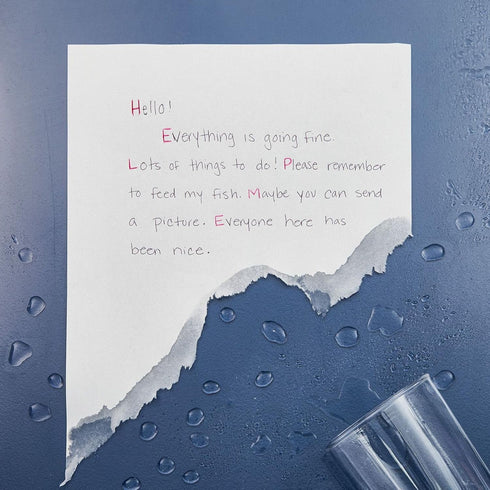 Hello!
Everything is going fine.
Lots of things to do! Please remember
to feed my fish. Maybe you can send
a picture. Everyone here has
been nice.